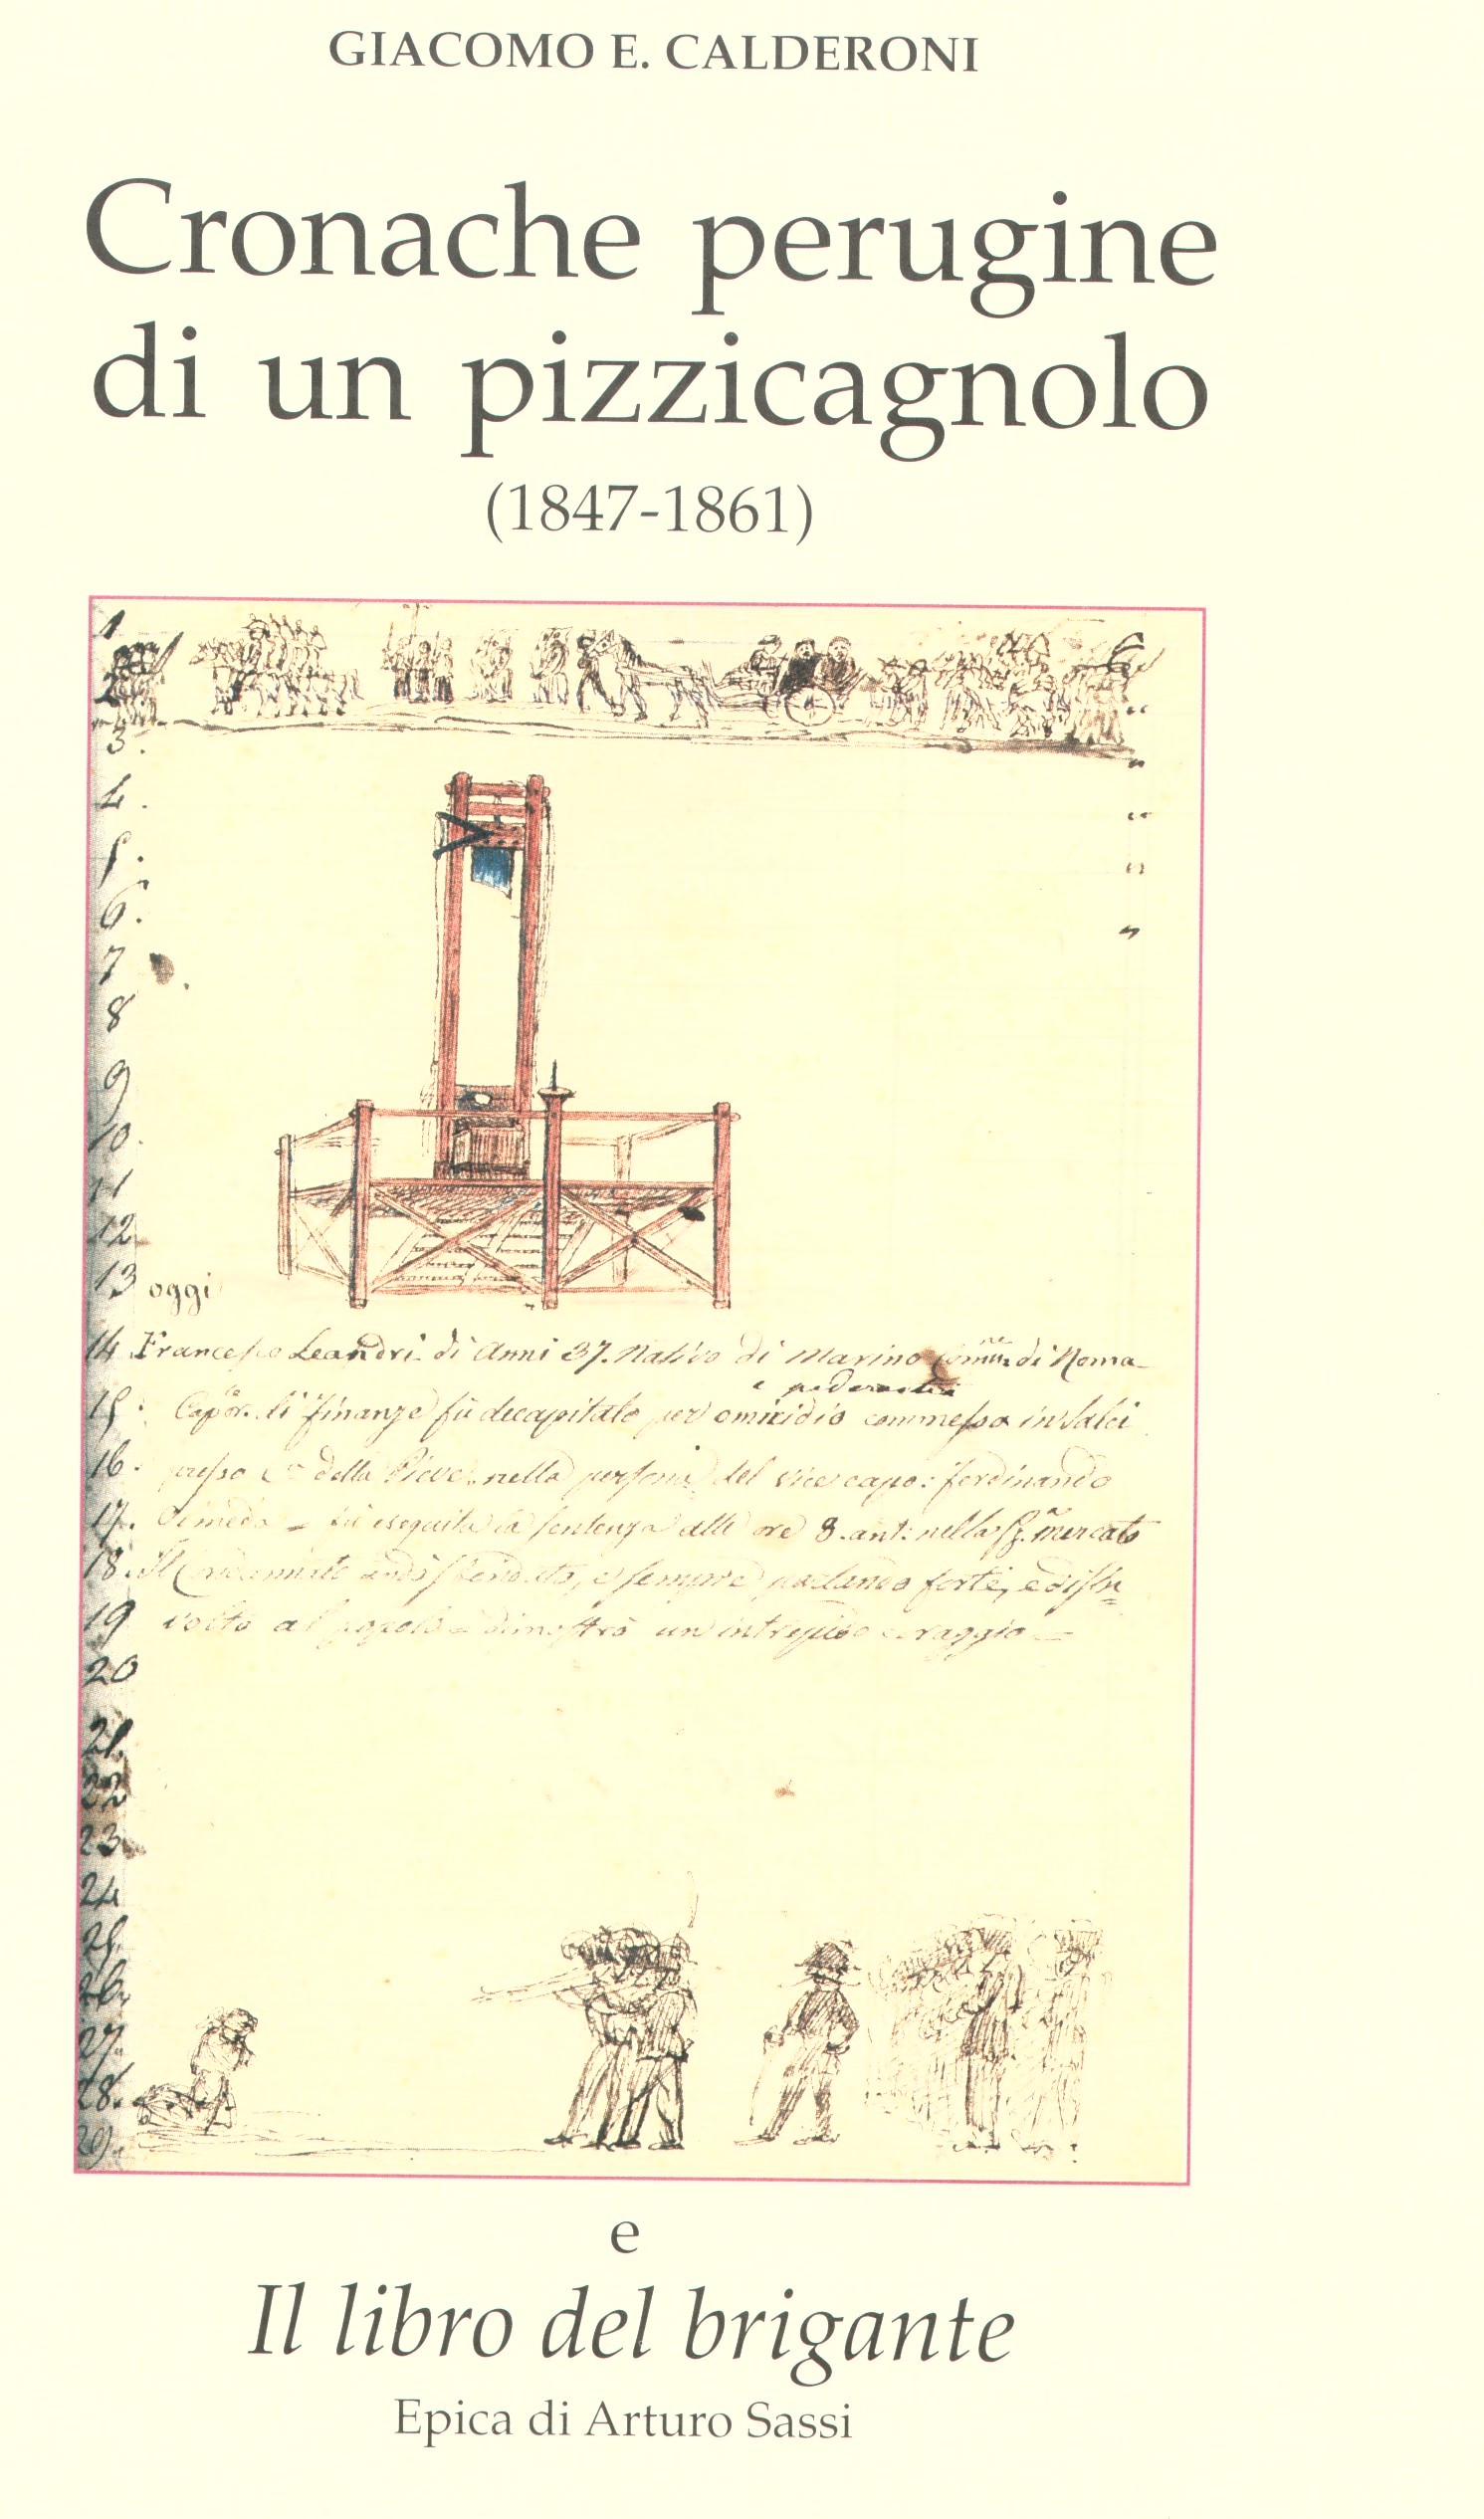 GIACOMO E. CALDERONI
Cronache perugine
di un pizzicagnolo
(1847-1861)
1
2
3.
4.
5.
6.
7
8
9
10.
11
12
13 oggi
14 Francesco Leandri di Anni 37. Nativo di Marino Comune di Roma
e pederastia
15. Capor. di finanze fù decapitato per omicidio commesso in Salci
16. presso C.a della Pieve nella persona del vice capo: ferdinando
17. fù eseguita la sentenza alle ore 8. ant: nella P.za mercato
18. Il Condannato andò sbendato, e sempre parlando forte, e disin=
19 volto al popolo = dimostrò un intrepido coraggio —
20
21.
22
23.
24
25.
26.
27.
28.
29.
e
Il libro del brigante
Epica di Arturo Sassi